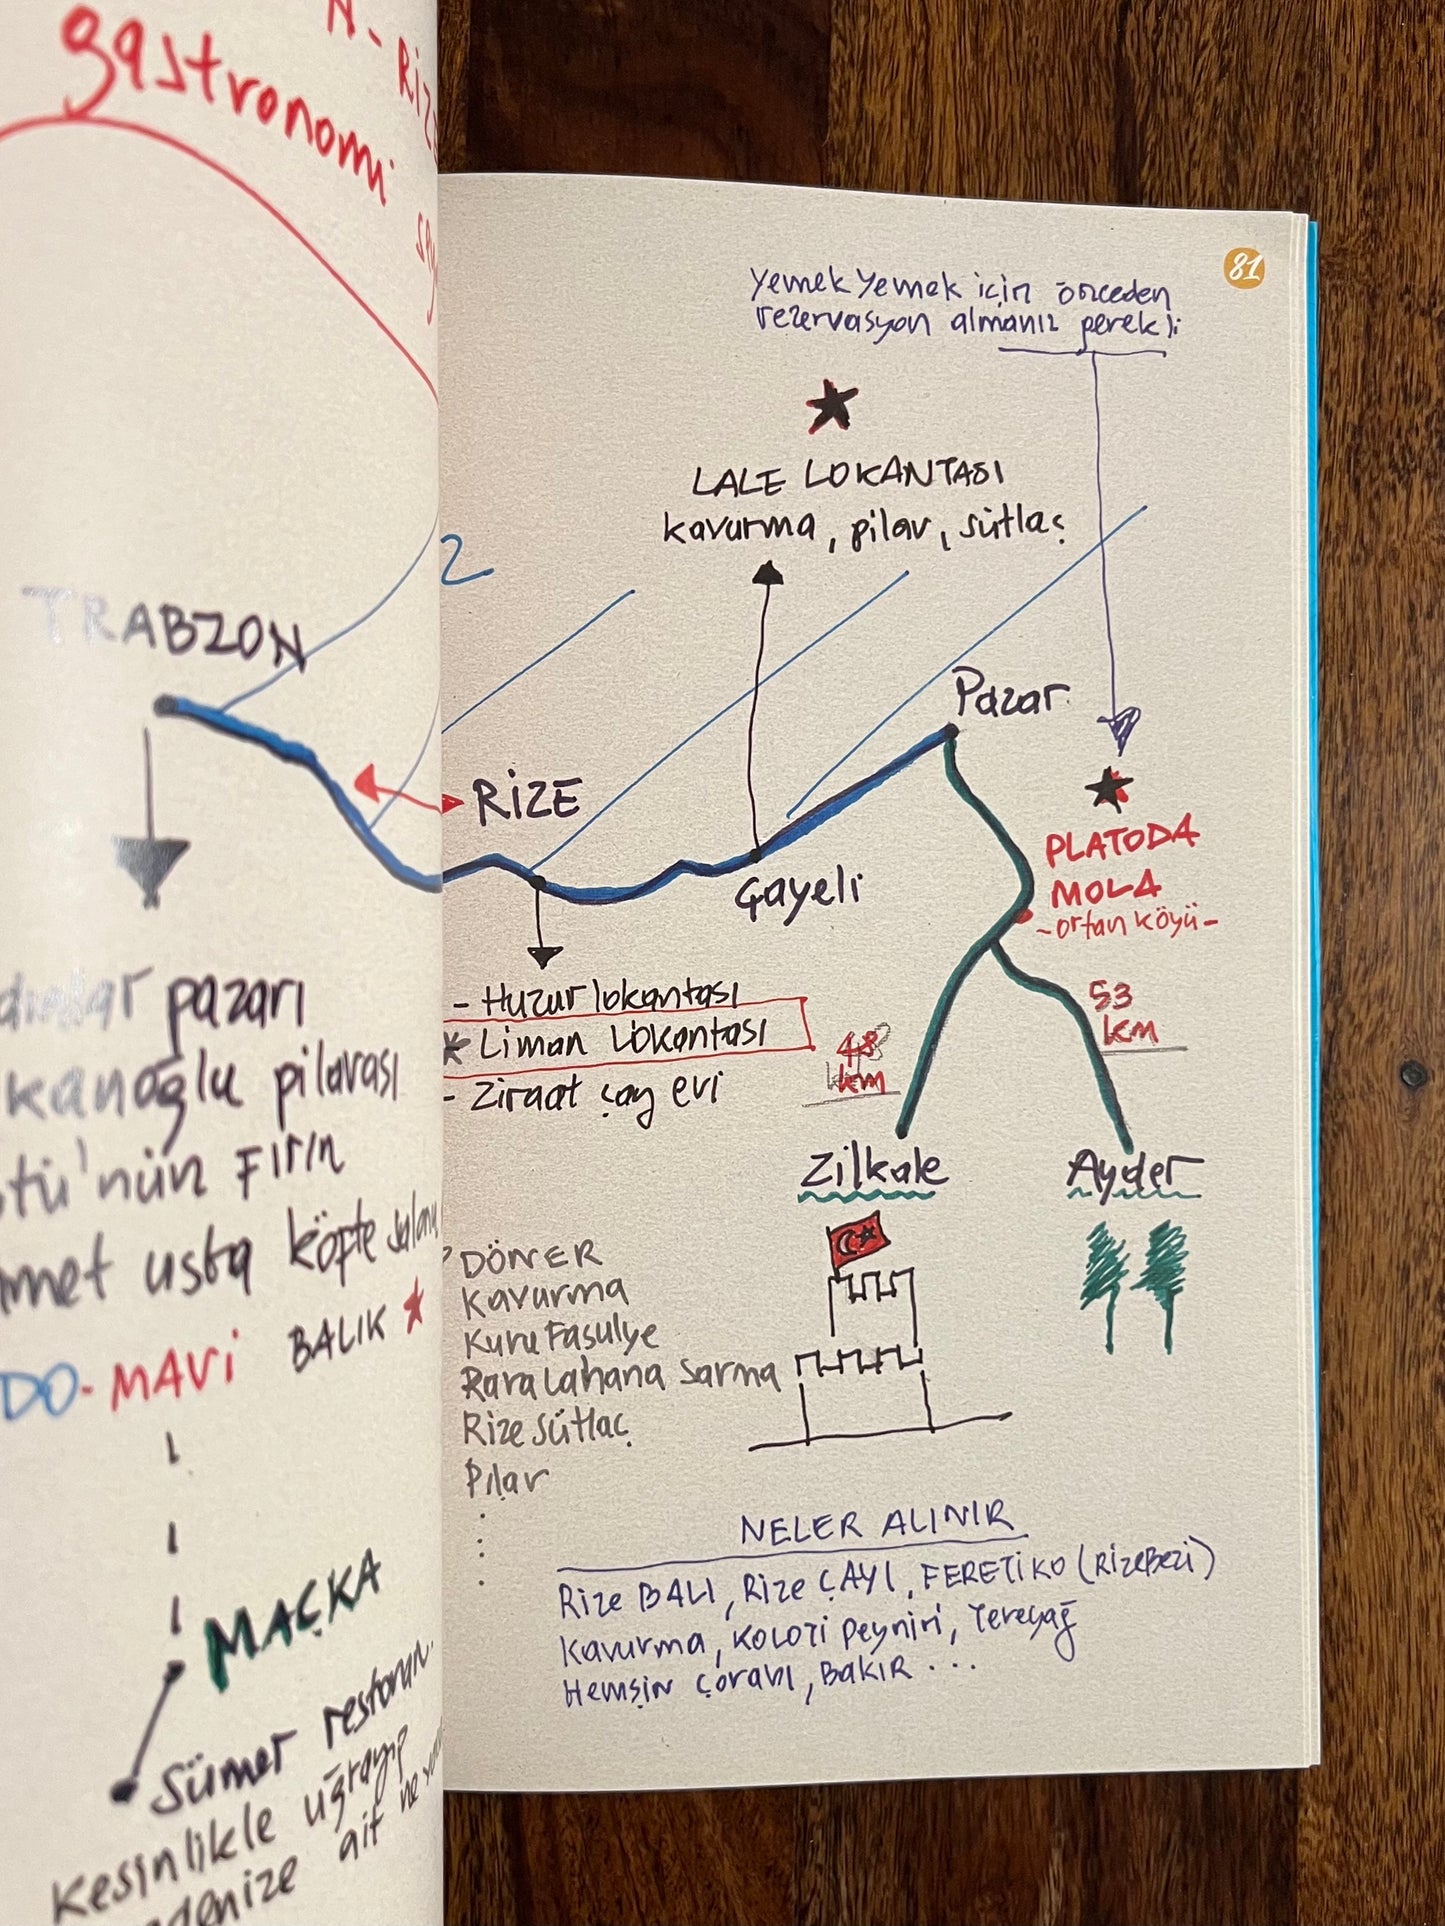 gastronomi
TRABZON
pazarı
pilavası
Fırın
usta köfte
MAVi BALIK
MAÇKA
Sümer restoran
Kesinlikle uğrayıp
ait ne
81
Yemek Yemek için önceden
rezervasyon almanız perekli
LALE LOKANTASI
kavurma, pilav, sütlaç
2
Pazar
RİZE
Çayeli
PLATODA
MOLA
-ortan köyü-
53
km
48
km
- Huzur lokantası
* Liman Lokantası
- Ziraat çay evi
Zilkale
Ayder
DÖNER
Kavurma
Kuru Fasulye
Kara Lahana Sarma
Rize Sütlaç
Pilav
NELER ALINIR
Rize BALI, Rize ÇAYI, FERETİKO (RİZEBEZİ)
Kavurma, KOLOTİ Peyniri, Tereyağ
Hemşin çorabı, BAKIR ...